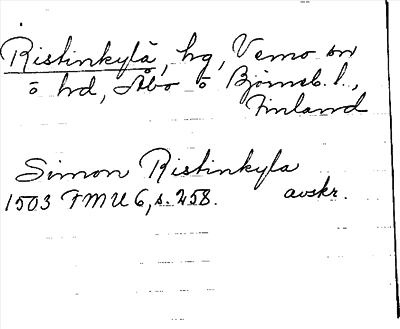 Ristinkylä, hg, Vemo sn
o hd, Åbo o Björneb. l.,
Finland
Simon Ristinkyla
1503 FMU 6, s. 258. avskr.